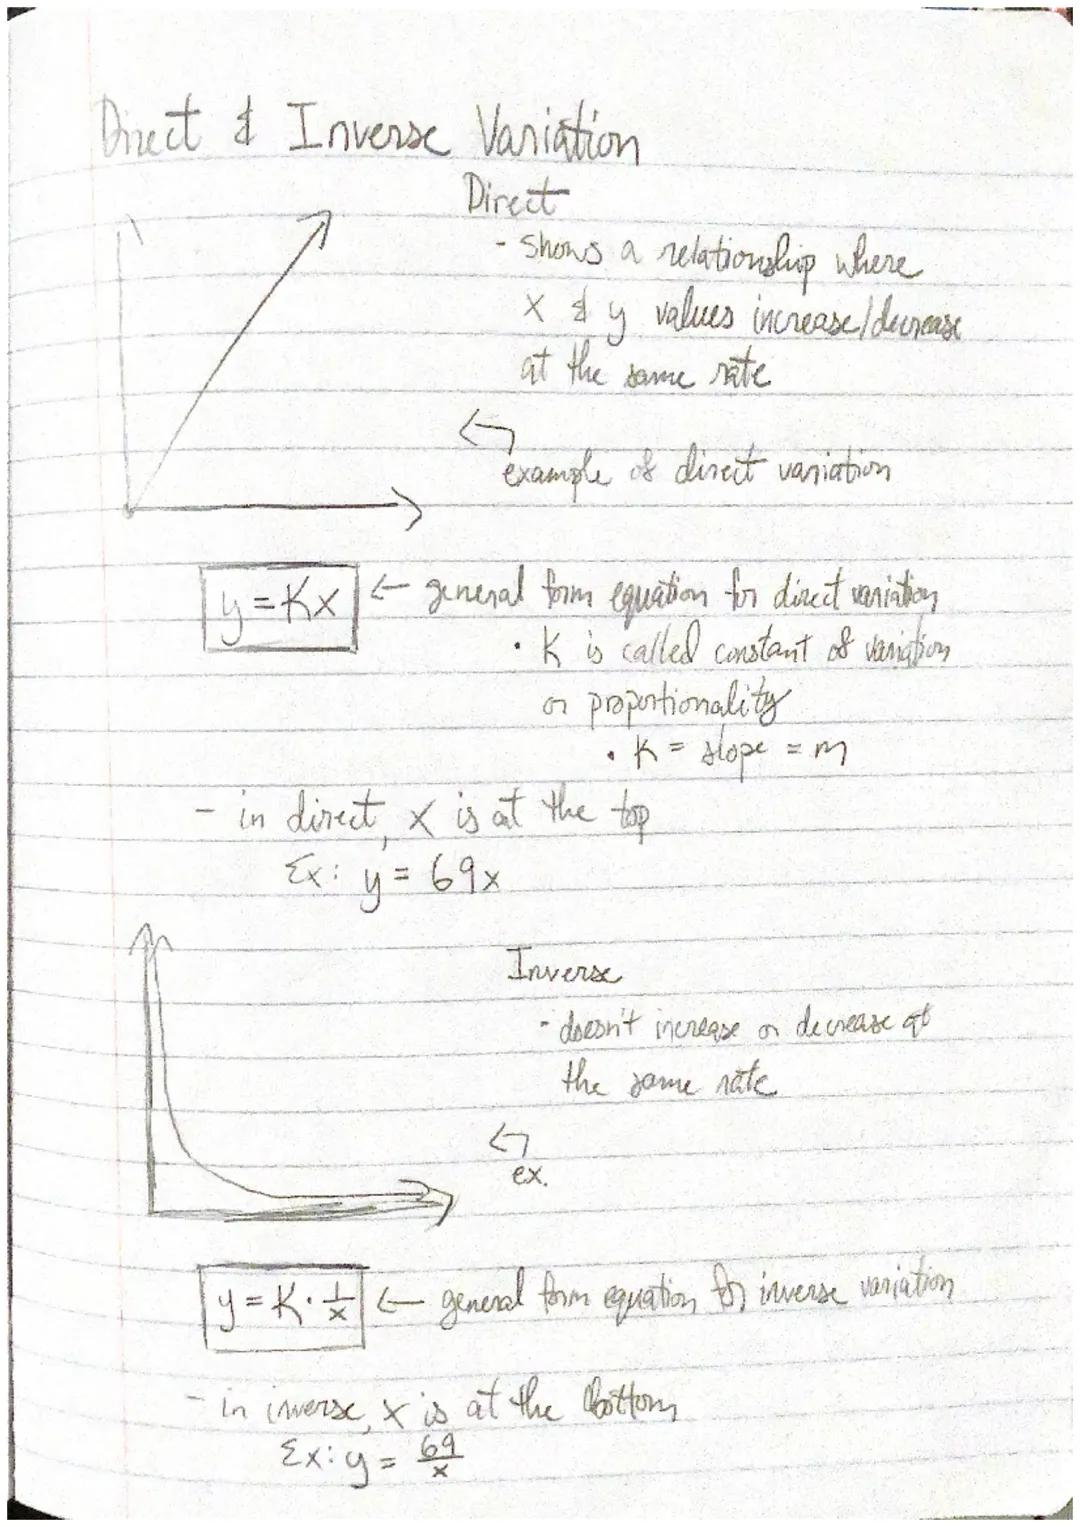 Direct & Inverse Variation
Direct
- shows a relationship where
x & y values increase/decrease
at the same rate
example of direct variation
y = Kx ← general form equation for direct variation
• K is called constant of variation
or proportionality
• K = slope = m
- in direct, x is at the top
Ex: y = 69x
Inverse
- doesn't increase or decrease at
the same rate
ex.
y = K · 1/x ← general form equation for inverse variation
- in inverse, x is at the bottom
Ex: y = 69/x